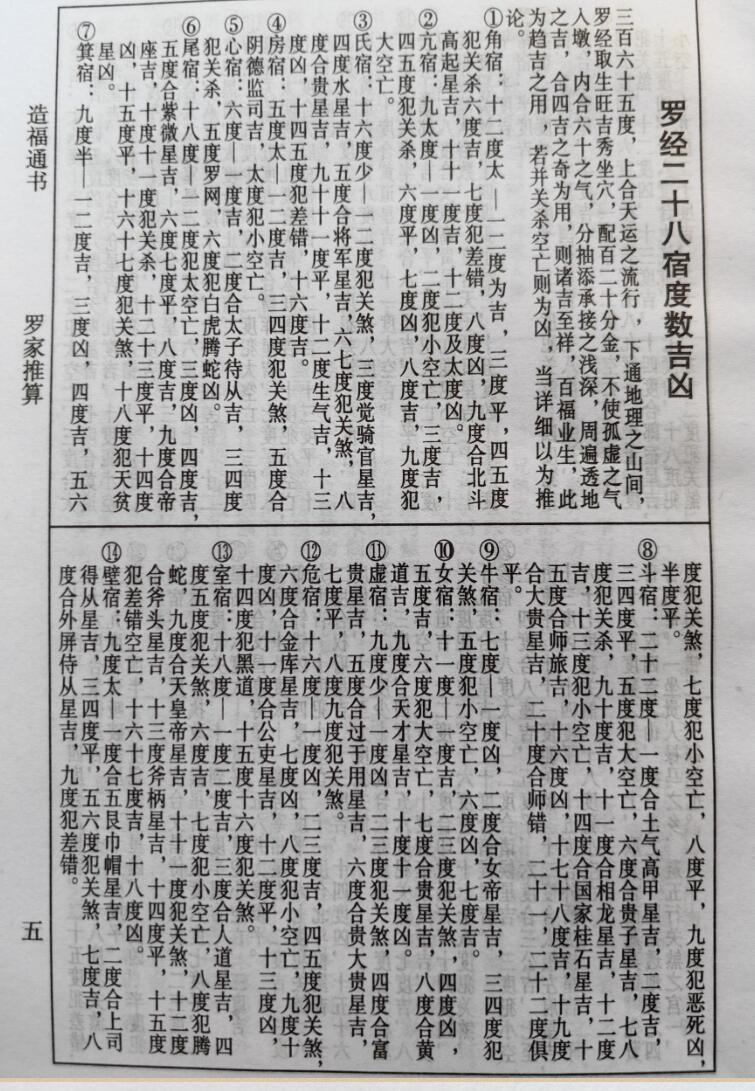 罗经二十八宿度数吉凶
三百六十五度，上合天运之流行，下通地理之山间，
罗经取生旺吉秀坐穴，配百二十分金，不使孤虚之气
人墩，内合六十之气，分抽添承接之浅深，周遍透地
之吉，合四吉之奇为用，则诸吉至祥，百福业生，此
为趋吉之用，若并关杀空亡则为凶，当详细以为推
论。
①角宿：十二度太—一二度为吉，三度平，四五度
犯关杀六度吉，七度犯差错，八度凶，九度合北斗
高起星吉，十十一度吉，十二度及太度凶。
②亢宿：九太度—一度凶，二度犯小空亡，三度吉，
四五度犯关杀，六度平，七度凶，八度吉，九度犯
大空亡。
③氐宿：十六度少—一二度犯关煞，三度觉骑官星吉，
四度水星吉，五度合将军星吉，六七度犯关煞，八
度合贵星吉，九十十一度平，十二度生气吉，十三
度凶，十四五度犯差错，十六度吉。
④房宿：五度太—一二度吉，三四度犯关煞，五度合
阴德监司吉，太度犯小空亡。
⑤心宿：六度—一度吉，二度合太子待从吉，三四度
犯关杀，五度罗网，六度犯白虎腾蛇凶。
⑥尾宿：十八度—一二度犯太空亡，三度凶，四度吉，
五度合紫微星吉，六度七度平，八度吉，九度合帝
座吉，十度十一度犯关杀，十二十三度平，十四度
凶，十五度平，十六十七度犯关煞，十八度犯天贫
星凶。
⑦箕宿：九度半—一二度吉，三度凶，四度吉，五六
度犯关煞，七度犯小空亡，八度平，九度犯恶死凶，
半度平。
⑧斗宿：二十二度—一度合土气高甲星吉，二度吉，
三四度平，五度犯大空亡，六度合贵子星吉，七八
度犯关杀，九十度吉，十一度合相龙星吉，十二度
吉，十三度犯小空亡，十四度合国家桂石星吉，十
五度合师旅吉，十六度凶，十七十八度吉，十九度
合大贵星吉，二十度合师错，二十一，二十二度俱
平。
⑨牛宿：七度—一度凶，二度合女帝星吉，三四度犯
关煞，五度犯小空亡，六度凶，七度吉。
⑩女宿：十一度—一度吉，二三度犯关煞，四度凶，
五度吉，六度犯大空亡，七度合贵星吉，八度合黄
道吉，九度合天才星吉，十度十一度凶。
⑪虚宿：九度少—一度凶，二三度犯关煞，四度合富
贵星吉，五度合过于用星吉，六度合贵大贵星吉，
七度平，八度九度犯关煞。
⑫危宿：十六度—一度凶，二三度吉，四五度犯关煞，
六度合金库星吉，七度凶，八度犯小空亡，九度十
度凶，十一度合公吏星吉，十二度平，十三度凶，
十四度犯黑道，十五度十六度犯关煞。
⑬室宿：十八度—一度二度吉，三度合人道星吉，四
度五度犯关煞，六度吉，七度犯小空亡，八度犯腾
蛇，九度合天皇帝星吉，十十一度犯关煞，十二度
合斧头星吉，十三度斧柄星吉，十四度平，十五度
犯差错空亡，十六十七度吉，十八度凶。
⑭壁宿：九度太—一度合五艮巾帽星吉，二度合上司
得从星吉，三四度平，五六度犯关煞，七度吉，八
度合外屏侍从星吉，九度犯差错。
造福通书
罗家推算
五